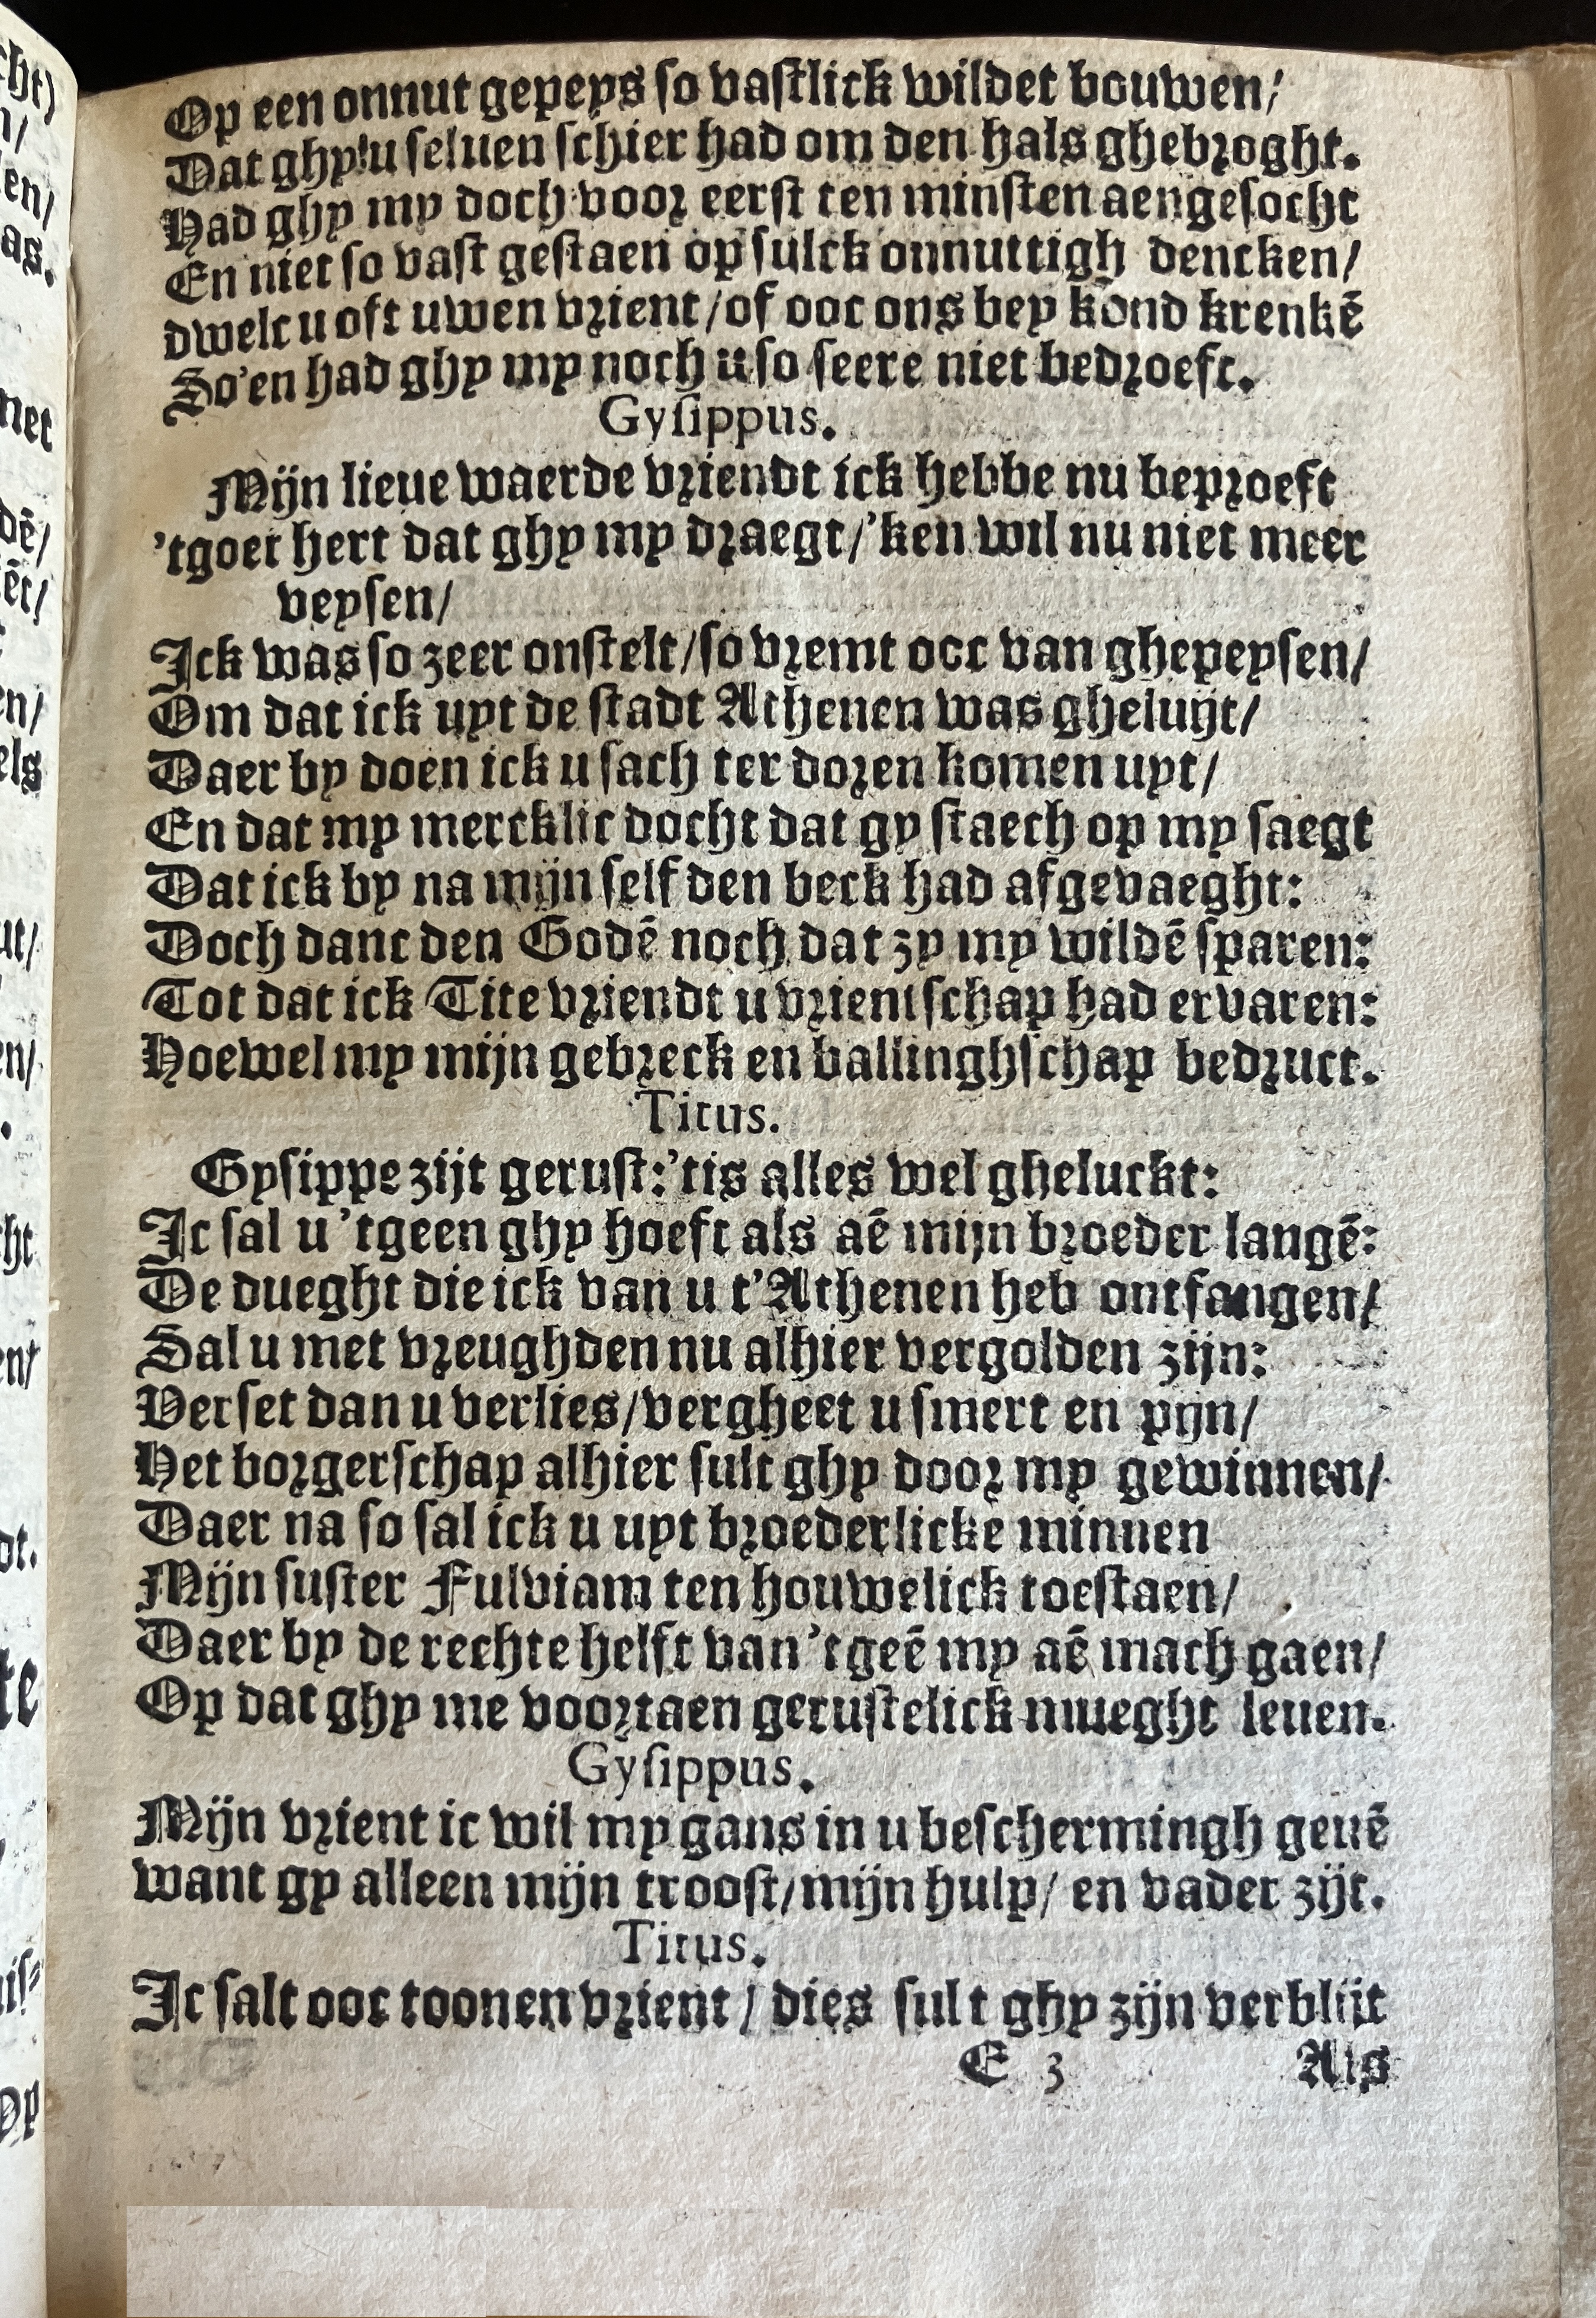 Op een onnut gepeys so vastlick wildet bouwen/
Dat ghy u seluen schier had om den hals ghebroght.
Had ghy my doch voor eerst ten minsten aengesocht
En niet so vast gestaen op sulck onnuttigh dencken/
dwelc u oft uwen vrient/of ooc ons bey kond krenkē
So'en had ghy my noch u so seere niet bedroeft.
Gysippus.
Mijn lieue waerde vriendt ick hebbe nu beproeft
'tgoet hert dat ghy my draegt/'ken wil nu niet meer
veysen/
Ick was so zeer onstelt/so vremt ooc van ghepeysen/
Om dat ick uyt de stadt Athenen was gheluijt/
Daer by doen ick u sach ter doren komen uyt/
En dat my mercklic docht dat gy staech op my saegt
Dat ick by na mijn self den beck had afgevaeght:
Doch danc den Godē noch dat zy my wildē sparen:
Tot dat ick Tite vriendt u vrientschap had ervaren:
Hoewel my mijn gebreck en ballinghschap bedruct.
Titus.
Gysippe zijt gerust:'tis alles wel gheluckt:
Ic sal u 'tgeen ghy hoeft als aē mijn broeder langē:
De dueght die ick van u t'Athenen heb ontfangen/
Sal u met vreughden nu alhier vergolden zijn:
Verset dan u verlies/vergheet u smert en pijn/
Het borgerschap alhier sult ghy door my gewinnen/
Daer na so sal ick u uyt broederlicke minnen
Mijn suster Fulviam ten houwelick toestaen/
Daer by de rechte helft van 'tgeē my aē mach gaen/
Op dat ghy me voortaen gerustelick mueght leuen.
Gysippus.
Mijn vrient ic wil my gans in u beschermingh geuē
want gy alleen mijn troost/mijn hulp/ en vader zijt.
Titus.
Ic salt ooc toonen vrient / dies sult ghy zijn verblijt
E 3 Als